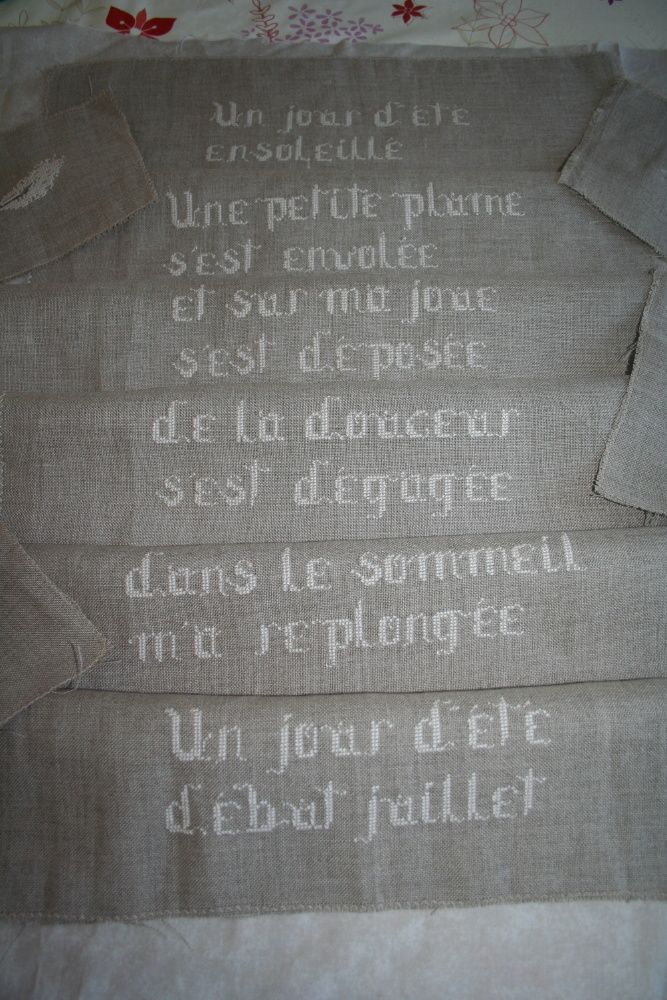 Un jour d'été
ensoleillé
Une petite plume
s'est envolée
et sur ma joue
s'est déposée
de la douceur
s'est dégagée
dans le sommeil
m'a replongée
Un jour d'été
début juillet